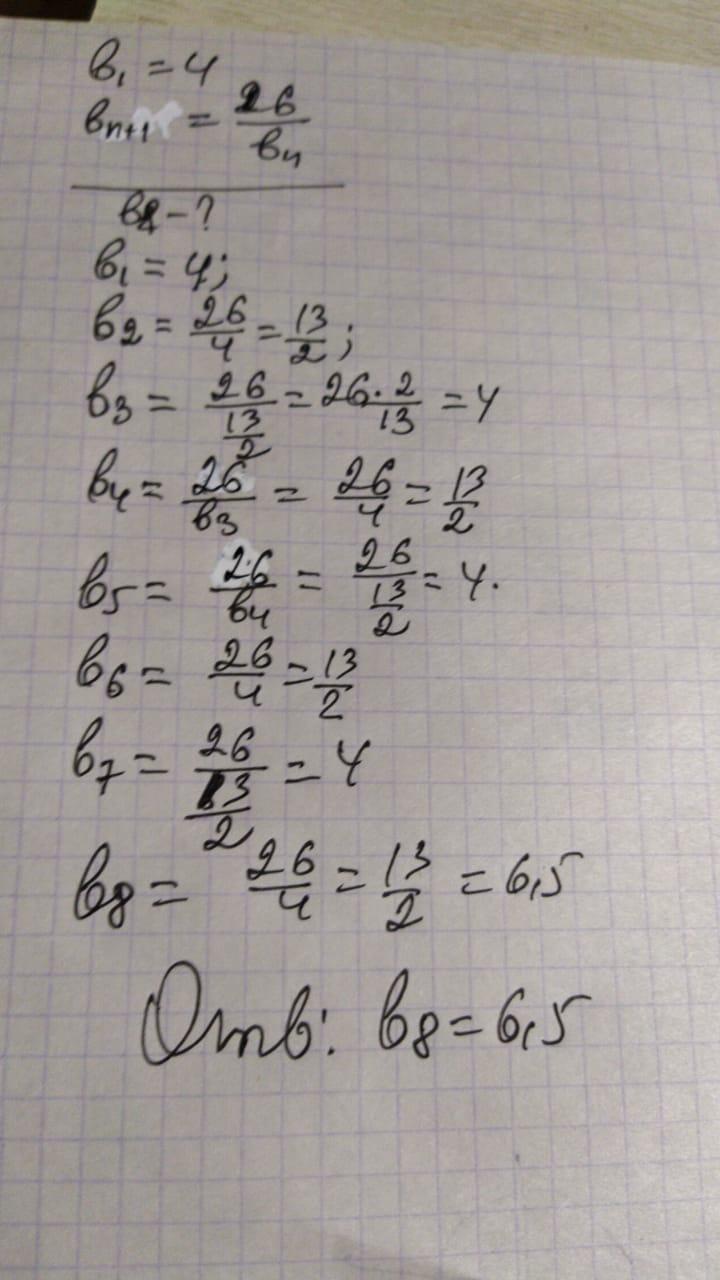 b₁ = 4
bₙ₊₁ = 26/bₙ
b8 - ?
b₁ = 4;
b₂ = 26/4 = 13/2;
b₃ = 26/(13/2) = 26·2/13 = 4
b₄ = 26/b₃ = 26/4 = 13/2
b₅ = 26/b₄ = 26/(13/2) = 4.
b₆ = 26/4 = 13/2
b₇ = 26/(13/2) = 4
b₈ = 26/4 = 13/2 = 6,5
Отв: b₈ = 6,5